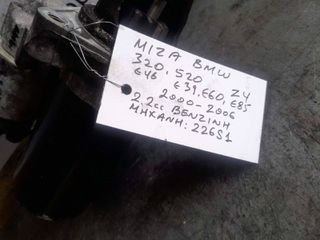 ΜΙΖΑ BMW
320, 520 Z4
E46 E39, E60, E85
2000-2006
2.2cc ΒΕΝΖΙΝΗ
ΜΗΧΑΝΗ: 226S1